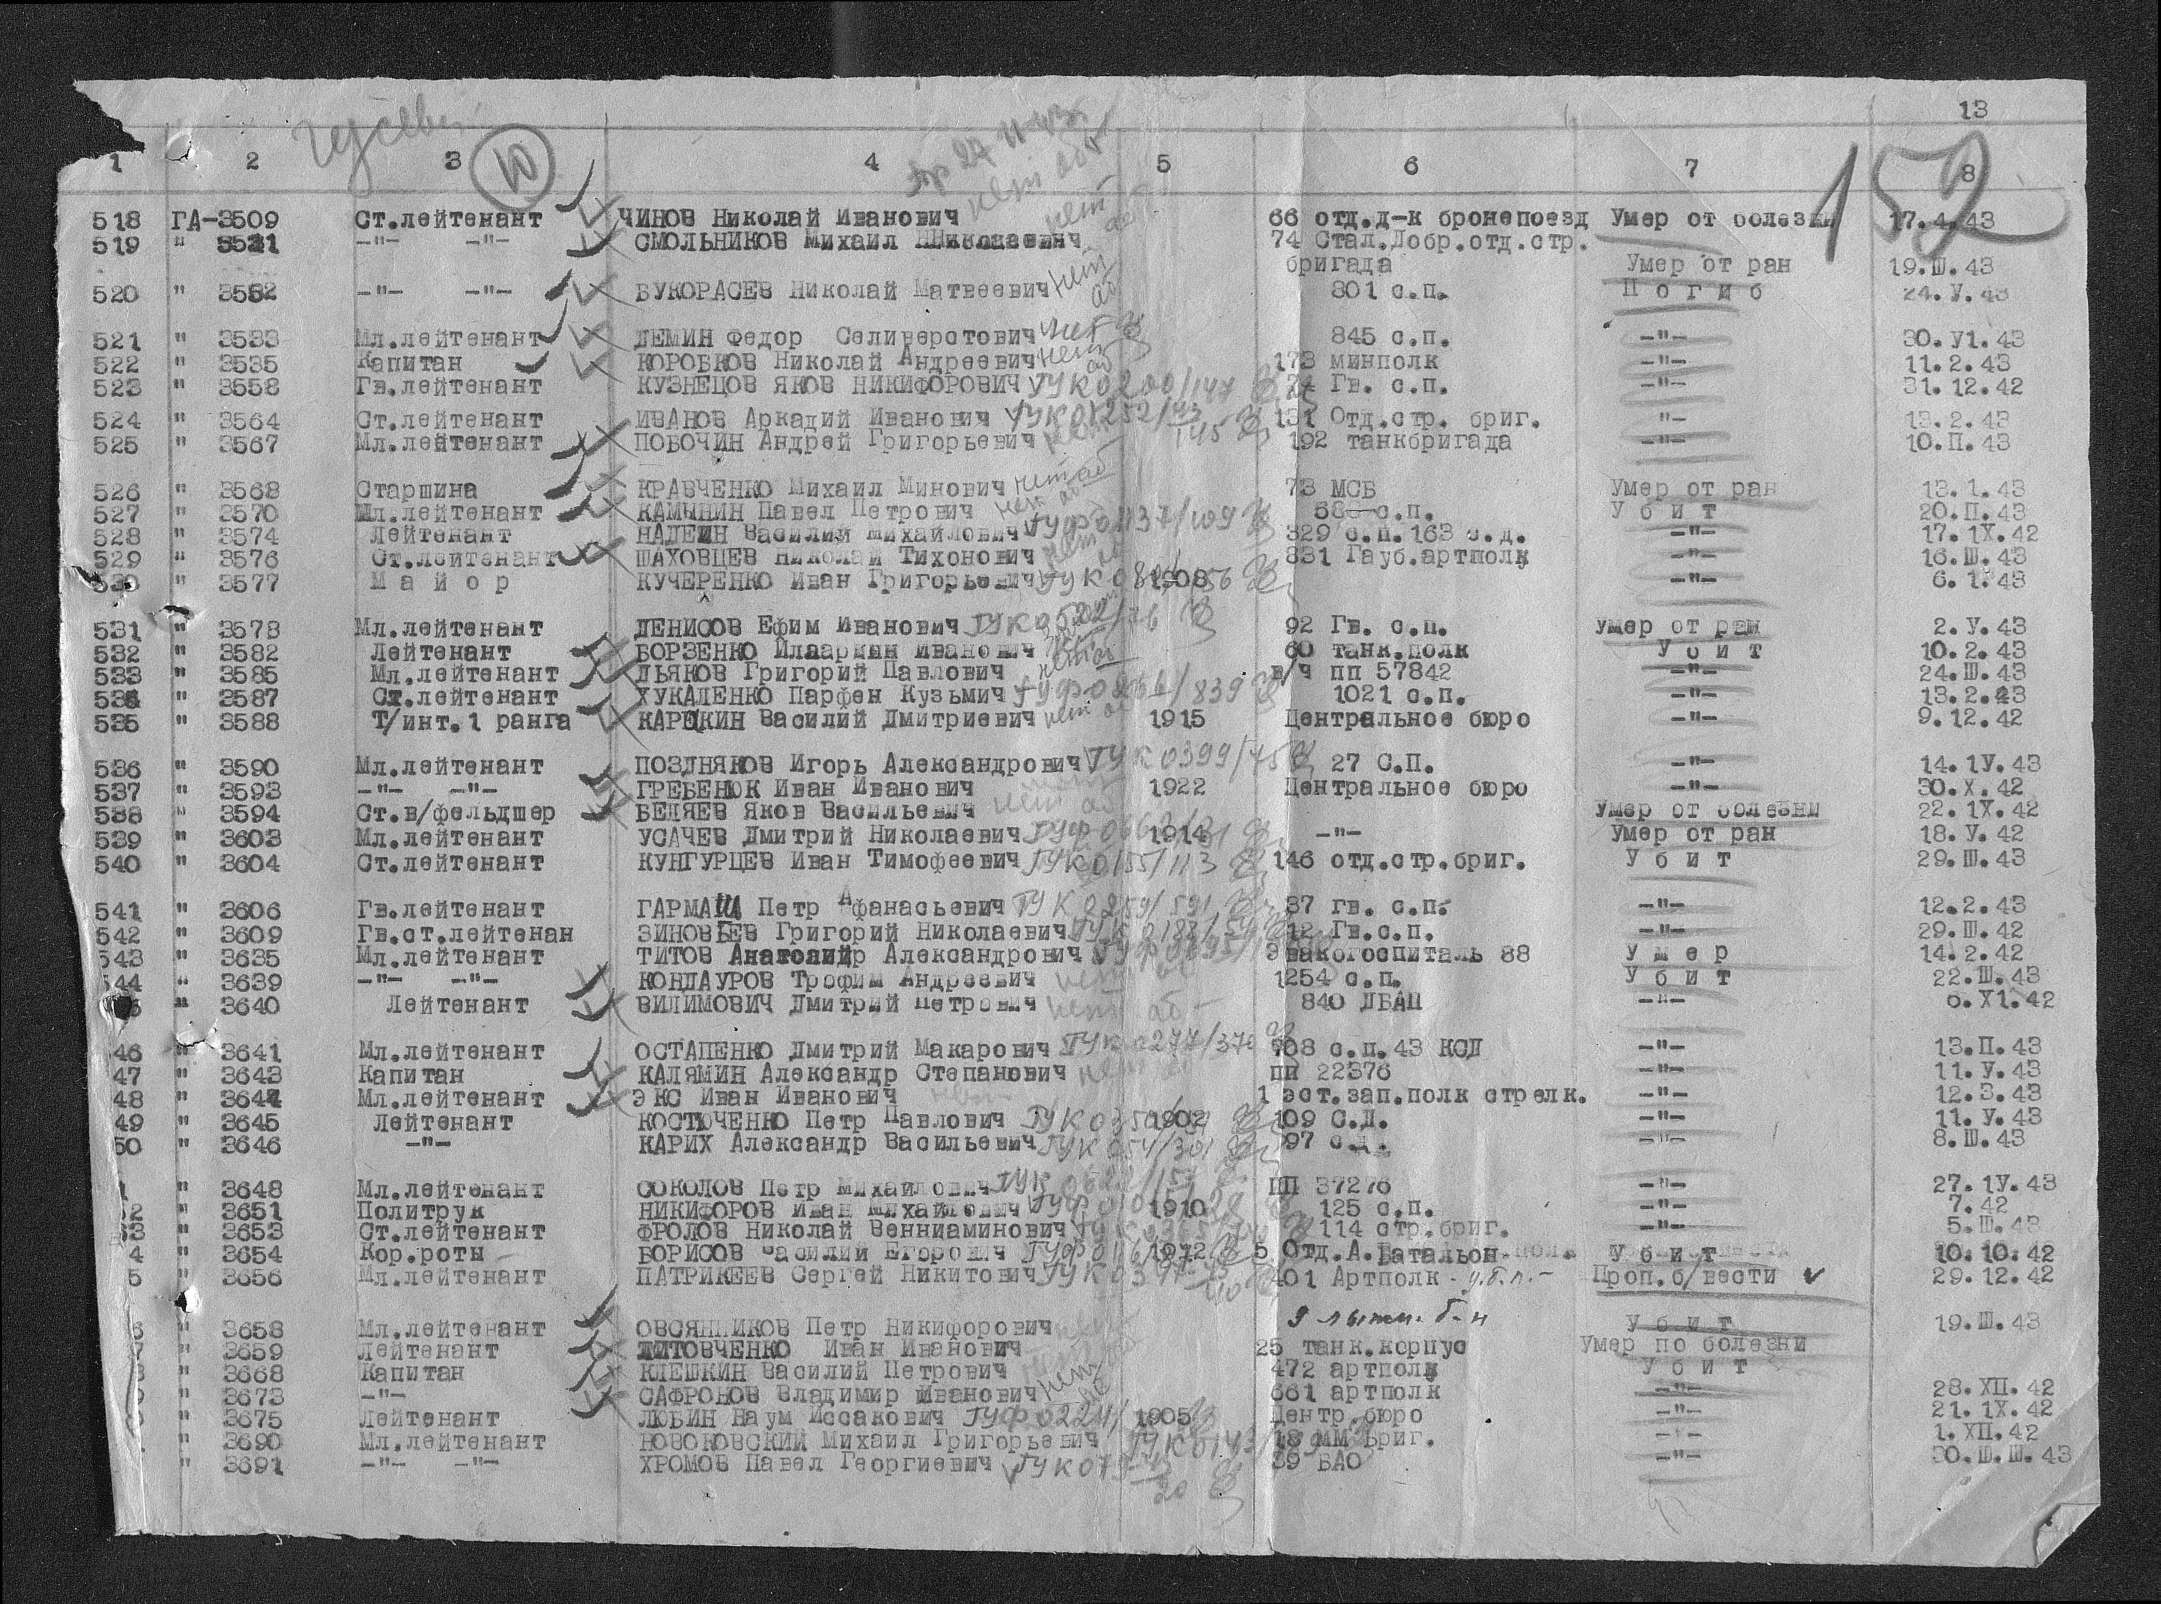 13
152
Гусев
10
1 2 3 4 5 6 7 8
518 ГА-3509 Ст.лейтенант ЧИНОВ Николай Иванович 66 отд.д-к бронепоезд Умер от болезни 17.4.43
519 " 3521 -"- -"- СМОЛЬНИКОВ Михаил Николаевич нет 74 Стал.Добр.отд.стр.
бригада Умер от ран 19.Ш.43
520 " 3532 -"- -"- БУКОРАСЕВ Николай Матвеевич нет 801 с.п. Погиб 24.У.43
521 " 3533 Мл.лейтенант ДЕМИН Федор Селиверстович нет 845 с.п. -"- 30.У1.43
522 " 3535 Капитан КОРОБКОВ Николай Андреевич нет 173 минполк -"- 11.2.43
523 " 3558 Гв.лейтенант КУЗНЕЦОВ ЯКОВ НИКИФОРОВИЧ ГУК 0200/147 Гв. с.п. -"- 31.12.42
524 " 3564 Ст.лейтенант ИВАНОВ Аркадий Иванович 131 Отд.стр. бриг. "- 13.2.43
525 " 3567 Мл.лейтенант ПОБОЧИН Андрей Григорьевич 192 танкбригада -"- 10.П.43
526 " 3568 Старшина КРАВЧЕНКО Михаил Минович нет аб 73 МСБ Умер от ран 13.1.43
527 " 3570 Мл.лейтенант КАМЫНИН Павел Петрович нет 68 с.п. Убит 20.П.43
528 " 3574 Лейтенант НАДЕИН Василий Михайлович 529 с.п.163 с.д. -"- 17.1Х.42
529 " 3576 Ст.лейтенант ШАХОВЦЕВ Николай Тихонович 831 Гауб.артполк -"- 16.Ш.43
530 " 3577 Майор КУЧЕРЕНКО Иван Григорьевич 1908 -"- 6.1.43
531 " 3578 Мл.лейтенант ДЕНИСОВ Ефим Иванович 92 Гв. с.п. Умер от ран 2.У.43
532 " 3582 Лейтенант БОРЗЕНКО Иларион Иванович 60 танк.полк Убит 10.2.43
533 " 3585 Мл.лейтенант ДЬЯКОВ Григорий Павлович в/ч пп 57842 -"- 24.Ш.43
534 " 3587 Ст.лейтенант ХУКАЛЕНКО Парфен Кузьмич 1021 с.п. -"- 13.2.43
535 " 3588 Т/инт.1 ранга КАРЯКИН Василий Дмитриевич нет 1915 Центральное бюро -"- 9.12.42
536 " 3590 Мл.лейтенант ПОЗДНЯКОВ Игорь Александрович ГУК 0399/75 27 С.П. -"- 14.1У.43
537 " 3593 -"- -"- ГРЕБЕНЮК Иван Иванович 1922 Центральное бюро -"- 30.Х.42
538 " 3594 Ст.в/фельдшер БЕЛЯЕВ Яков Васильевич нет аб Умер от болезни 22.1Х.42
539 " 3603 Мл.лейтенант УСАЧЕВ Дмитрий Николаевич 1914 -"- Умер от ран 18.У.42
540 " 3604 Ст.лейтенант КУНГУРЦЕВ Иван Тимофеевич ГУК 0155/113 146 отд.стр.бриг. Убит 29.Ш.43
541 " 3606 Гв.лейтенант ГАРМАШ Петр Афанасьевич ГУК 0259/591 37 гв. с.п. -"- 12.2.43
542 " 3609 Гв.ст.лейтенан ЗИНОВЬЕВ Григорий Николаевич 12 Гв.с.п. -"- 29.Ш.42
543 " 3635 Мл.лейтенант ТИТОВ Александрович Эвакогоспиталь 88 Умер 14.2.42
44 " 3639 -"- -"- КОНДАУРОВ Трофим Андреевич 1254 с.п. Убит 22.Ш.43
5 " 3640 Лейтенант ВИЛИМОВИЧ Дмитрий Петрович нет аб 840 ДБАП -"- 6.Х1.42
46 " 3641 Мл.лейтенант ОСТАПЕНКО Дмитрий Макарович ГУК 0277/370 708 с.п.43 КСД -"- 13.П.43
47 " 3643 Капитан КАЛЯМИН Александр Степанович пп 22376 -"- 11.У.43
48 " 3644 Мл.лейтенант ЭКС Иван Иванович 1 эст.зап.полк стрелк. -"- 12.3.43
49 " 3645 Лейтенант КОСТЮЧЕНКО Петр Павлович 1902 109 С.Д. -"- 11.У.43
50 " 3646 -"- КАРИХ Александр Васильевич 97 с.д. -"- 8.Ш.43
" 3648 Мл.лейтенант СОКОЛОВ Петр Михайлович ПП 37276 -"- 27.1У.43
2 " 3651 Политрук НИКИФОРОВ Иван Михайлович 1910 125 с.п. -"- 7.42
3 " 3653 Ст.лейтенант ФРОЛОВ Николай Венниаминович 114 стр.бриг. -"- 5.Ш.43
4 " 3654 Ком.роты БОРИСОВ Василий Егорович 1912 5 Отд.А.Батальон Убит 10.10.42
5 " 3656 Мл.лейтенант ПАТРИКЕЕВ Сергей Никитович 401 Артполк Проп.б/вести 29.12.42
6 " 3658 Мл.лейтенант ОВСЯННИКОВ Петр Никифорович 9 лыжн. б-н Убит 19.Ш.43
7 " 3659 Лейтенант ТИТОВЧЕНКО Иван Иванович 25 танк.корпус Умер по болезни
" 3668 Капитан КЛЕШКИН Василий Петрович 472 артполк Убит
" 3673 -"- САФРОНОВ Владимир Иванович нет 661 артполк -"- 28.ХП.42
" 3675 Лейтенант ЛЮБИН Наум Иссакович 1905 Центр.бюро -"- 21.1Х.42
" 3690 Мл.лейтенант НОВОКОВСКИЙ Михаил Григорьевич 18 ММ Бриг. -"- 1.ХП.42
" 3691 -"- -"- ХРОМОВ Павел Георгиевич 39 БАО -"- 30.Ш.Ш.43